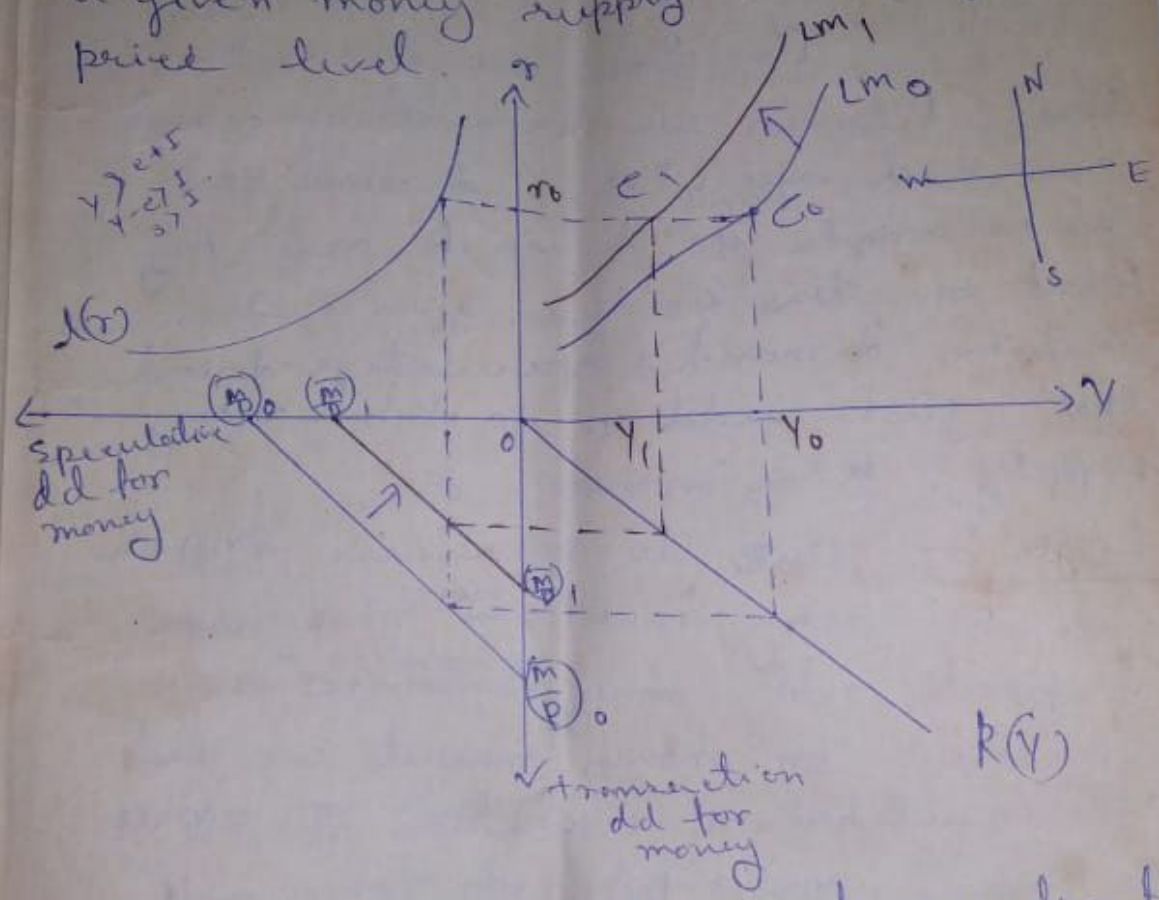 a given money supply
price level.
r
LM1
LM0
N
W
E
S
r0
C0
l(r)
(M/P)0
(M/P)1
Y
Speculative
dd for
money
0
Y1
Y0
(M/P)1
(M/P)0
K(Y)
transaction
dd for
money